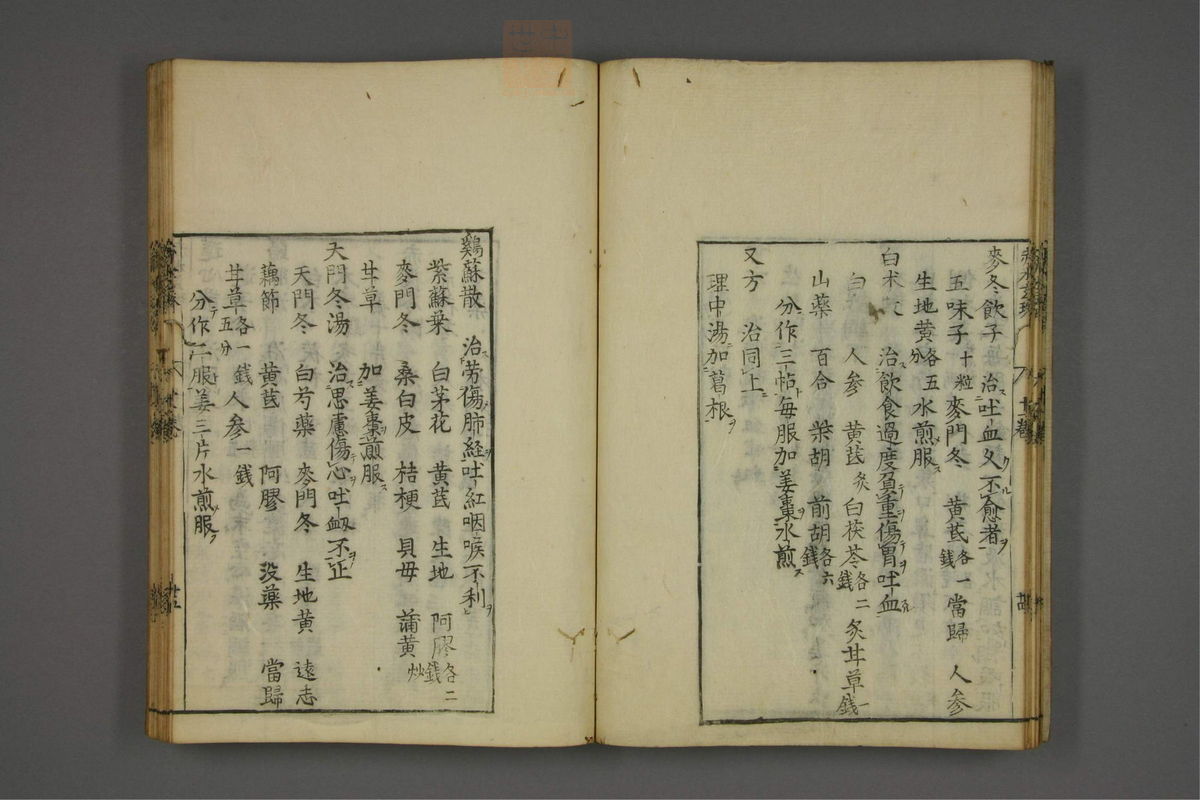 麥冬飲子 治吐血久不愈者
五味子十粒 麥門冬 黃芪各一錢 當歸 人参
生地黃各五分 水煎服
白术 治飲食過度負重傷胃吐血
人参 黃芪炙 白茯苓各二錢 炙甘草一錢
山藥 百合 柴胡 前胡各六錢
分作三帖每服加姜棗水煎
又方 治同上
理中湯加葛根
鷄蘇散 治劳傷肺経吐紅咽喉不利
紫蘇葉 白茅花 黃芪 生地 阿膠各二錢
麥門冬 桑白皮 桔梗 貝母 蒲黃炒
甘草 加姜棗煎服
天門冬湯 治思慮傷心吐血衂不止
天門冬 白芍藥 麥門冬 生地黃 遠志
藕節 黃芪 阿膠 没藥 當歸
甘草各五分 人参一錢
分作二服姜三片水煎服